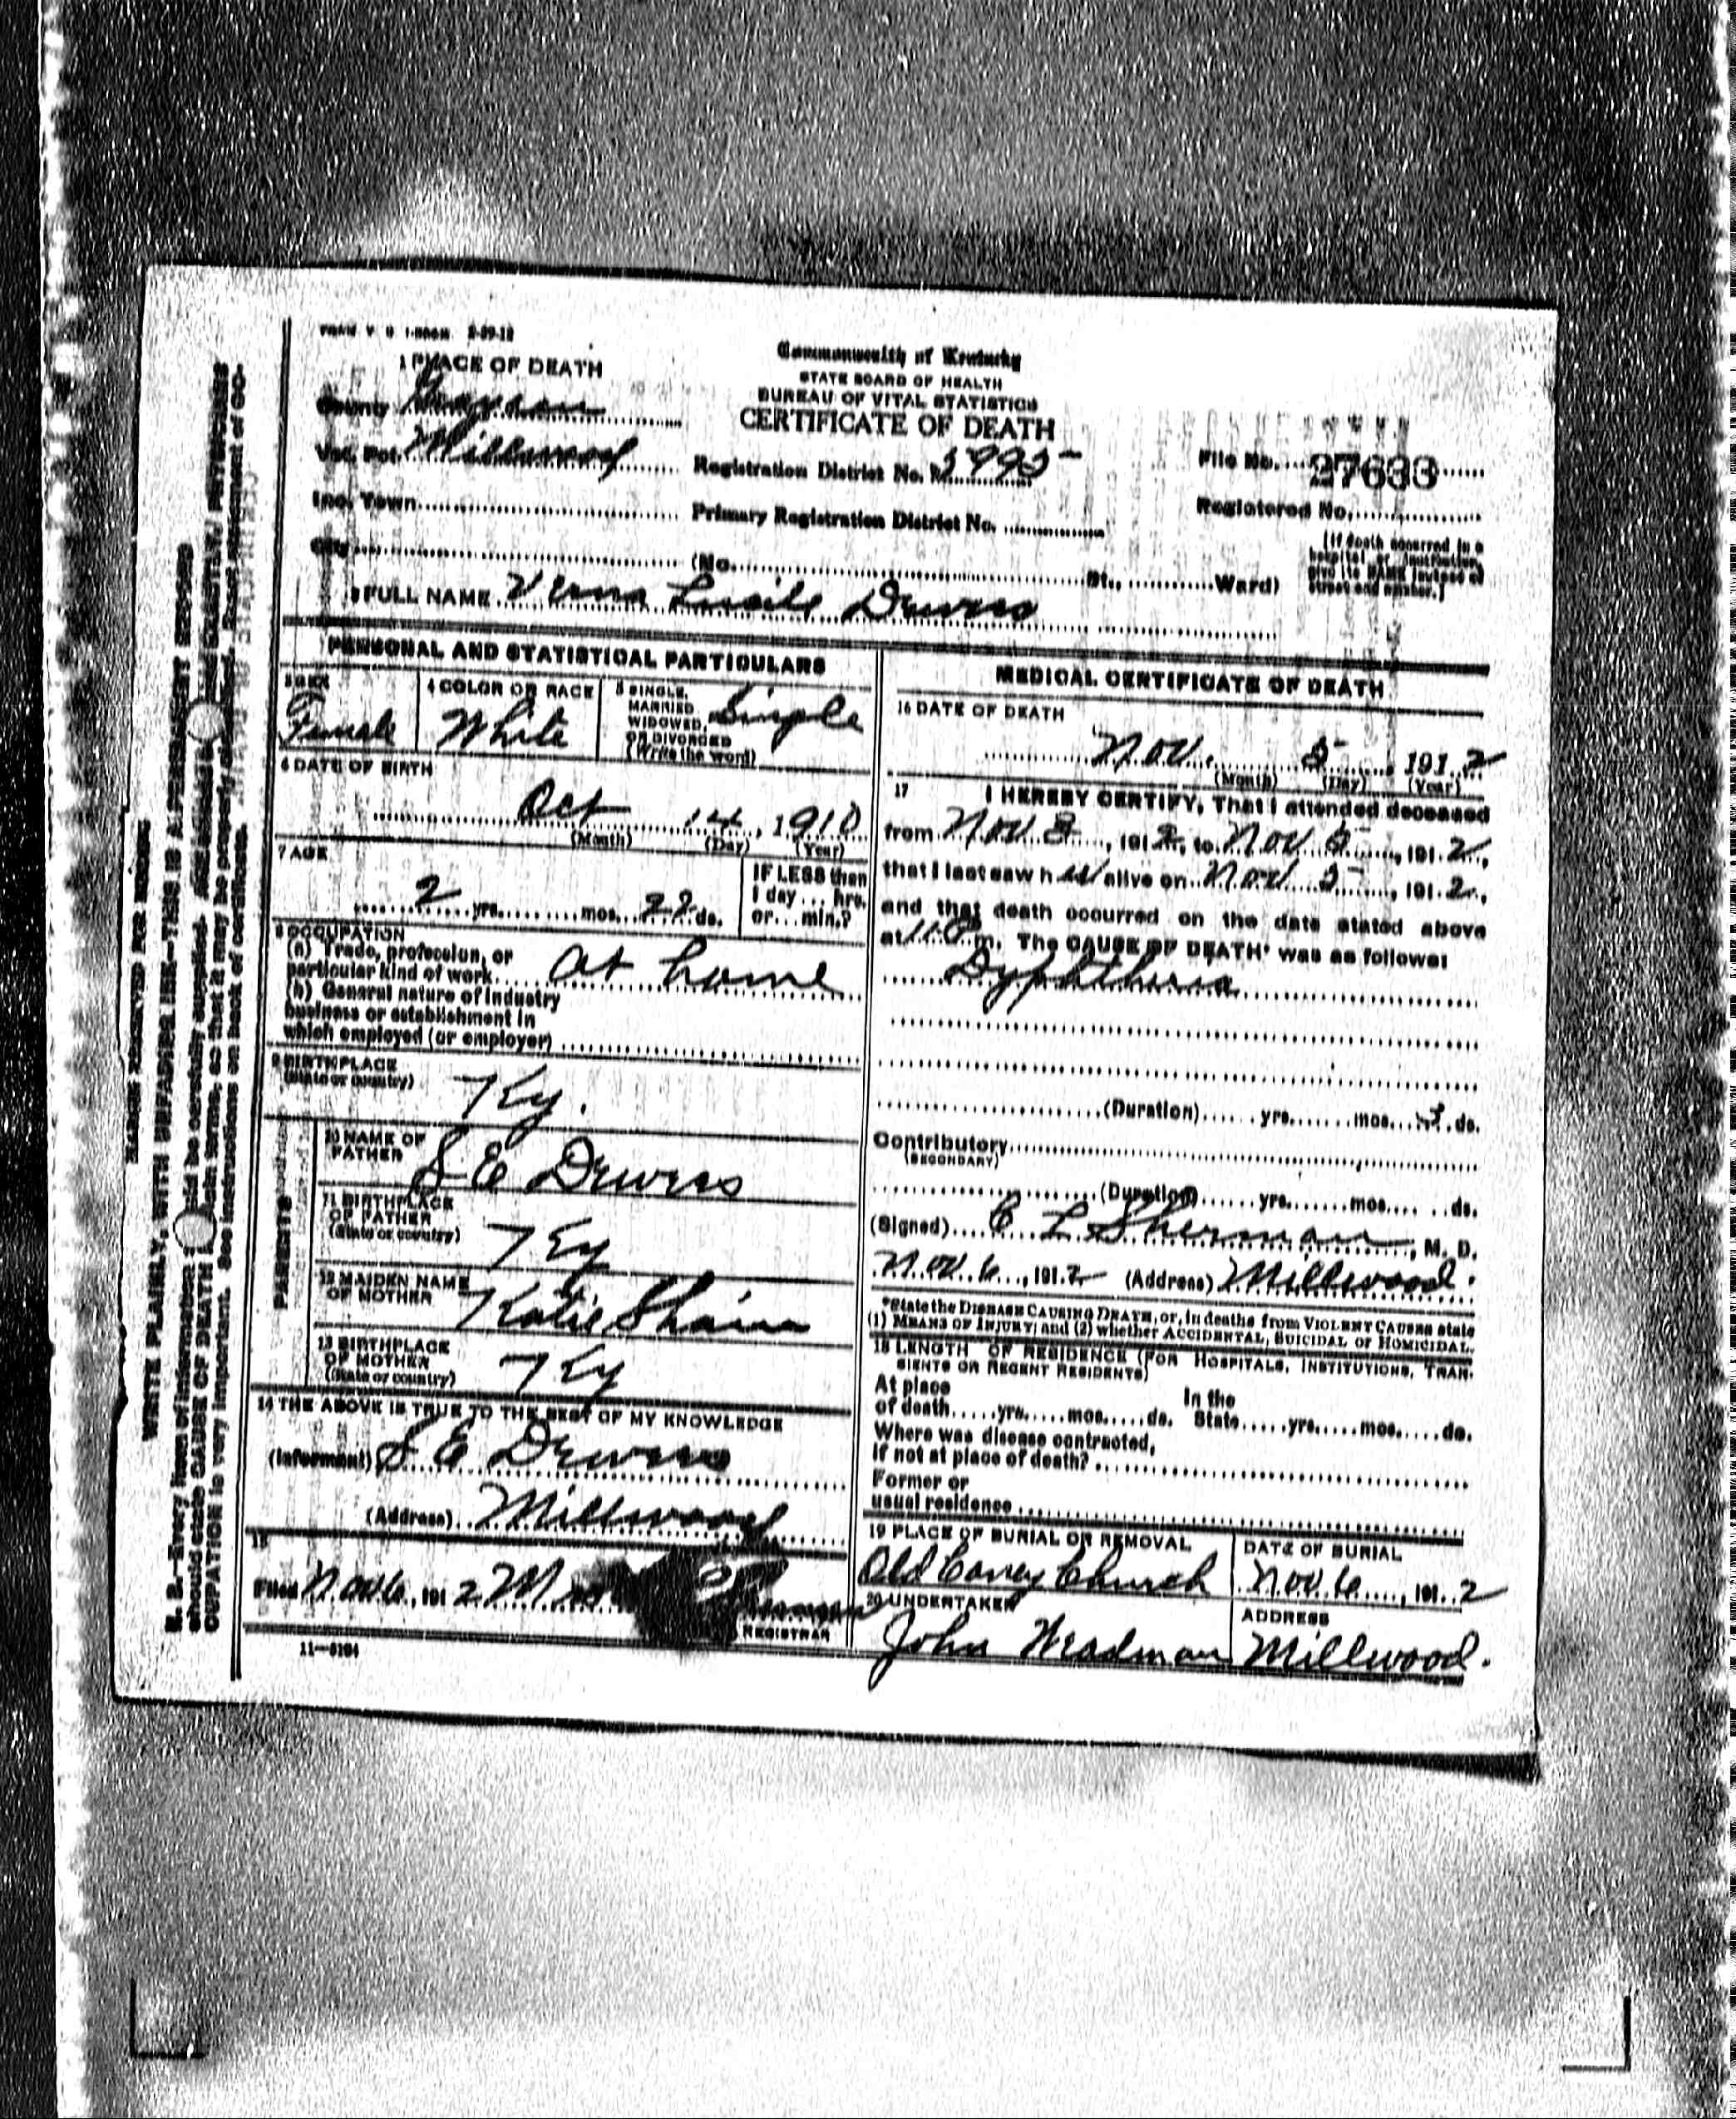 FORM V S 1-500M 2-29-12
1 PLACE OF DEATH
County Grayson
Vot. Pct. Millwood
Inc. Town
City
Commonwealth of Kentucky
STATE BOARD OF HEALTH
BUREAU OF VITAL STATISTICS
CERTIFICATE OF DEATH
Registration District No.
Primary Registration District No.
(No. St., Ward)
File No. 27633
Registered No.
[If death occurred in a
hospital or institution,
give its NAME instead of
street and number.]
2 FULL NAME Verna Lucile
PERSONAL AND STATISTICAL PARTICULARS
3 SEX
Female
4 COLOR OR RACE
White
5 SINGLE,
MARRIED
WIDOWED,
OR DIVORCED
(Write the word)
Single
6 DATE OF BIRTH
Oct 14, 1910
(Month) (Day) (Year)
7 AGE
2 yrs. mos. 22 ds.
IF LESS than
1 day... hrs.
or... min.?
8 OCCUPATION
(a) Trade, profession, or
particular kind of work At home
(b) General nature of industry
business or establishment in
which employed (or employer)
9 BIRTHPLACE
(State or country) Ky.
PARENTS
10 NAME OF
FATHER S E
11 BIRTHPLACE
OF FATHER
(State or country) Ky
12 MAIDEN NAME
OF MOTHER Katie
13 BIRTHPLACE
OF MOTHER
(State or country) Ky
14 THE ABOVE IS TRUE TO THE BEST OF MY KNOWLEDGE
(Informant) S E
(Address) Millwood
15
Filed Nov 6, 1912
REGISTRAR
11—5184
MEDICAL CERTIFICATE OF DEATH
16 DATE OF DEATH
Nov. 5, 1912
(Month) (Day) (Year)
17 I HEREBY CERTIFY, That I attended deceased
from Nov 3, 1912, to Nov 5, 1912,
that I last saw her alive on Nov 5, 1912,
and that death occurred on the date stated above
at m. The CAUSE OF DEATH* was as follows:
Dyphtheria
(Duration) yrs. mos. 3 ds.
Contributory
(SECONDARY)
(Duration) yrs. mos. ds.
(Signed) C L Sherman, M. D.
Nov. 6, 1912 (Address) Millwood.
*State the DISEASE CAUSING DEATH, or, in deaths from VIOLENT CAUSES state
(1) MEANS OF INJURY; and (2) whether ACCIDENTAL, SUICIDAL or HOMICIDAL.
18 LENGTH OF RESIDENCE (FOR HOSPITALS, INSTITUTIONS, TRAN-
SIENTS OR RECENT RESIDENTS)
At place In the
of death yrs. mos. ds. State yrs. mos. ds.
Where was disease contracted,
if not at place of death?
Former or
usual residence
19 PLACE OF BURIAL OR REMOVAL
Old Caney Church
DATE OF BURIAL
Nov 6, 1912
20 UNDERTAKER
John
ADDRESS
Millwood.
MARGIN RESERVED FOR BINDING
WRITE PLAINLY, WITH UNFADING INK—THIS IS A PERMANENT RECORD
N. B.—Every item of information should be carefully supplied. AGE should be stated EXACTLY. PHYSICIANS
should state CAUSE OF DEATH in plain terms, so that it may be properly classified. Exact statement of OC-
CUPATION is very important. See instructions on back of certificate.